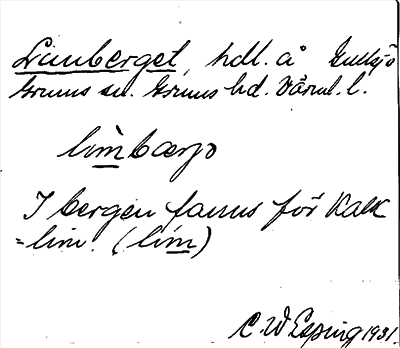 Limberget, hdl. å Gullsjö
Grums sn. Grums hd. Värml. l.
lìmbærjə
I bergen fanns för Kalk
=lim. (lim)
C. W Esping 1931.